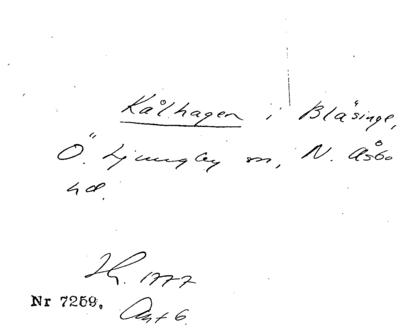 Kålhagen i Bläsinge,
Ö. Ljungby sn, N. Åsbo
hd.
1777
Nr 7259.